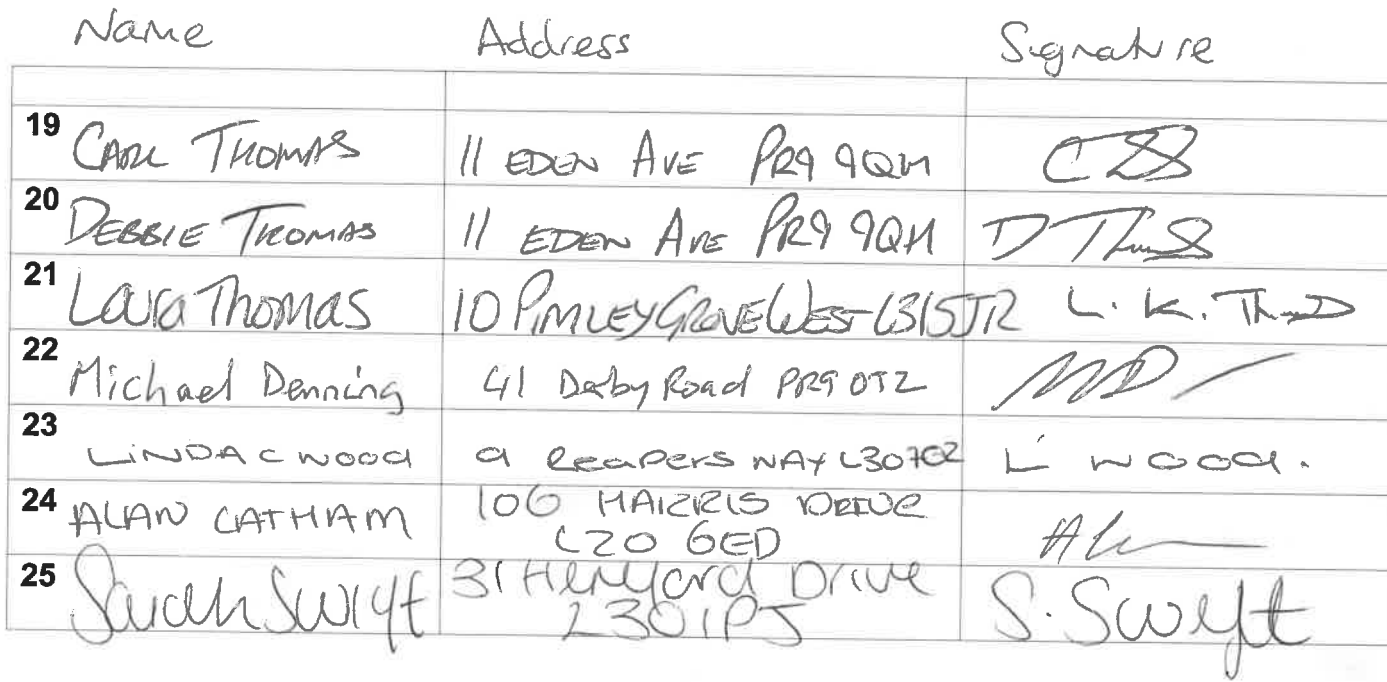 Name Address Signature
19 CARL THOMAS 11 EDEN AVE PR9 9QH
20 DEBBIE THOMAS 11 EDEN AVE PR9 9QH D Thomas
21 Lara Thomas 10 PIMLEY GROVE WEST L31 5JR L. K. Thomas
22 Michael Denning 41 Derby Road PR9 0TZ MD
23 LINDA C WOOD 9 REAPERS WAY L30 7QZ L WOOD.
24 ALAN LATHAM 106 HARRIS DRIVE
L20 6ED
25 Sarah Swift 31 Hereford Drive S. Swift
L30 1PJ